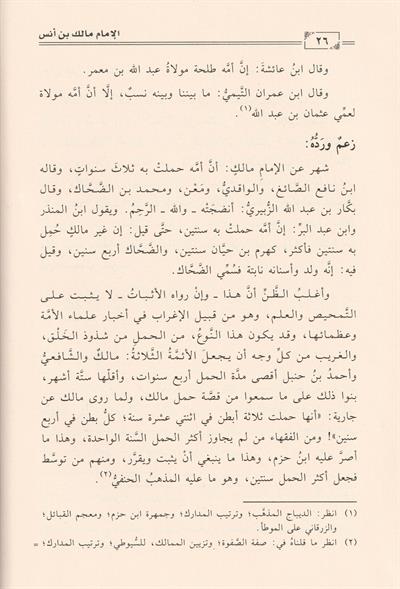 ٢٦ الإمام مالك بن أنس
وقال ابنُ عائشةَ: إنَّ أمَّه طلحة مولاةُ عبد الله بن معمر.
وقال ابن عمران التَّيميُّ: ما بيننا وبينه نسبٌ، إلَّا أنَّ أمَّه مولاة
لعمِّي عثمان بن عبد الله(١).
زعمٌ وردُّهُ:
شهر عن الإمام مالكٍ: أنَّ أمَّه حملتْ به ثلاثَ سنواتٍ، وقاله
ابنُ نافع الصَّائغ، والواقديُّ، ومَعْن، ومحمد بن الضَّحَّاك، وقال
بكَّار بن عبد الله الزُّبيريُّ: أنضجَتْه ـ والله ـ الرَّحِمُ. ويقول ابنُ المنذر
وابن عبد البرِّ: إنَّ أمَّه حملتْ به سنتين، حتَّى قيل: إن غير مالكٍ حُمِل
به سنتين فأكثر، كهرم بن حيَّان سنتين، والضَّحَّاك أربع سنين، وقيل
فيه: إنَّه ولد وأسنانه نابتة فسُمِّي الضَّحَّاك.
وأغلبُ الظَّنِّ أنَّ هذا ـ وإنْ رواه الأثباتُ ـ لا يثبت على
التَّمحيص والعلم، وهو من قبيل الإغراب في أخبار علماء الأمَّة
وعظمائها، وقد يكون هذا النَّوعُ، من الحملِ من شذوذ الخَلْق،
والغريب من كلِّ وجه أن يجعلَ الأئمَّةُ الثَّلاثةُ: مالكٌ والشَّافعيُّ
وأحمدُ بنُ حنبل أقصى مدَّة الحمل أربع سنوات، وأقلّها ستَّة أشهر،
بنوا ذلك على ما سمعوا من قصَّة حمل مالك، ولما روى مالك عن
جارية: «أنها حملت ثلاثة أبطن في اثنتي عشرة سنة؛ كلُّ بطن في أربع
سنين»! ومن الفقهاء من لم يجاوز أكثر الحمل السَّنة الواحدة، وهذا ما
أصرَّ عليه ابنُ حزم، وهذا ما ينبغي أنْ يثبت ويتقرَّر، ومنهم من توسَّط
فجعل أكثر الحمل سنتين، وهو ما عليه المذهبُ الحنفيُّ(٢).
(١) انظر: الديباج المذهَّب؛ وترتيب المدارك؛ وجمهرة ابن حزم؛ ومعجم القبائل؛
والزرقاني على الموطأ.
(٢) انظر ما قلناهُ في: صفة الصَّفوة؛ وتزيين الممالك، للسُّيوطي؛ وترتيب المدارك؛ =